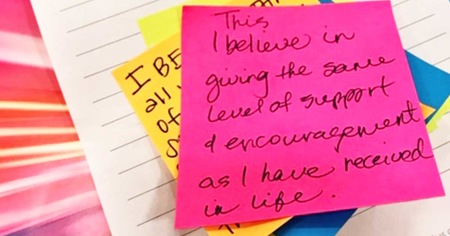 This
I believe in
giving the same
level of support
& encouragement
as I have received
in life.
I BE
all
of